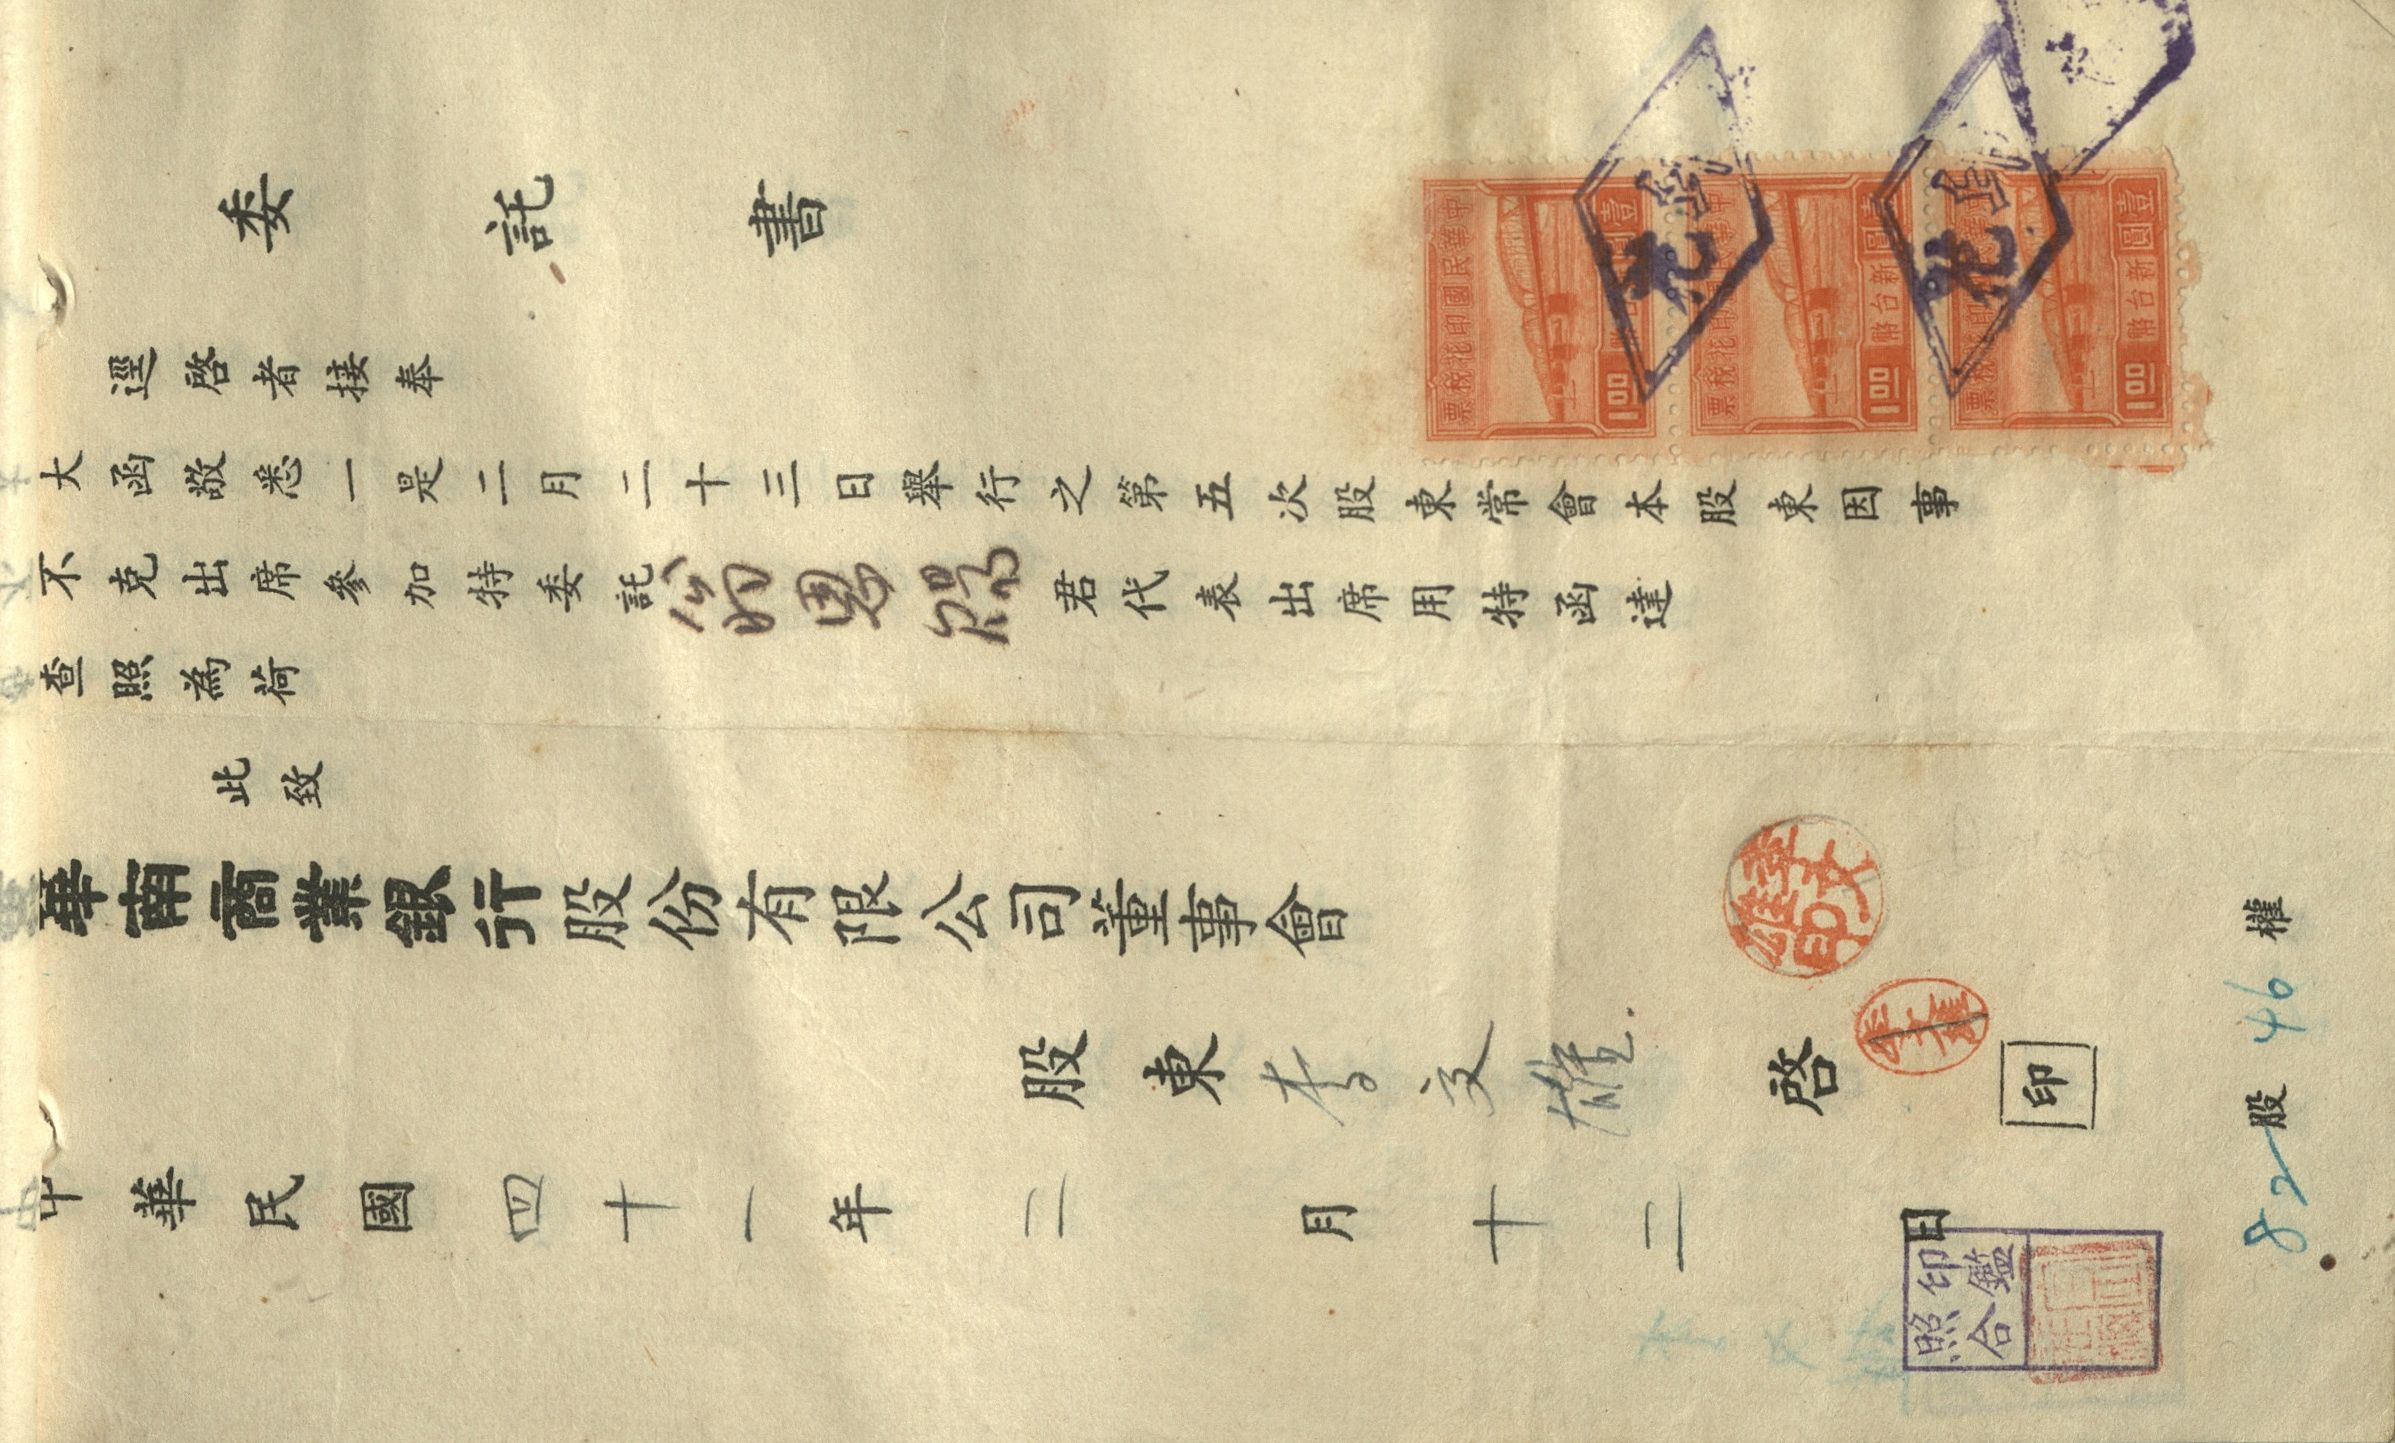 委託書
逕啓者接奉
大函敬悉一是二月二十三日舉行之第五次股東常會本股東因事
不克出席參加特委託翁恩賜君代表出席用特函達
查照為荷
此致
華南商業銀行股份有限公司董事會
股東李文雄啓
印
中華民國四十一年二月十二日
82股46權
中華民國印花稅票
壹圓
新台幣
1.00
壹圓
新台幣
1.00
壹圓
新台幣
1.00
李文雄印
李文雄
印鑑
照合